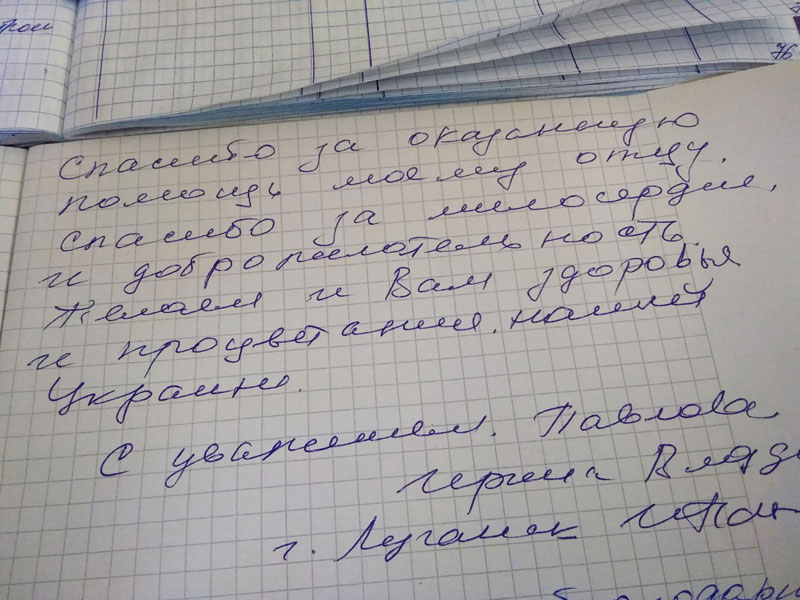 76
Спасибо за оказанную
помощь моему отцу.
Спасибо за милосердие,
и доброжелательность.
Желаем и Вам здоровья
и процветания. нашей
Украине.
С уважением. Павлова
Ирина
г. Луганск